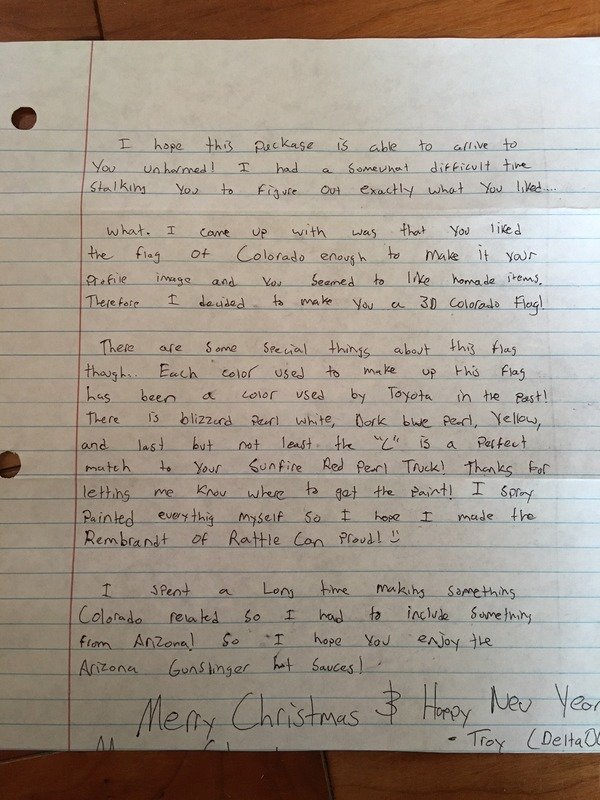 I hope this package is able to arrive to
you unharmed! I had a somewhat difficult time
stalking you to figure out exactly what you liked....
What. I came up with was that you liked
the flag of Colorado enough to make it your
profile image and you seemed to like homade items.
Therefore I decided to make you a 3D Colorado Flag!
There are some special things about this flag
though... Each color used to make up this flag
has been a color used by Toyota in the past!
There is blizzard pearl white, Dark blue pearl, Yellow,
and last but not least the "C" is a perfect
match to your Sunfire Red Pearl Truck! Thanks for
letting me know where to get the paint! I spray
painted everythig myself so I hope I made the
Rembrandt of Rattle Can Proud! :)
I spent a Long time making something
Colorado related so I had to include something
from Arizona! So I hope you enjoy the
Arizona Gunslinger hot sauces!
Merry Christmas & Happy New Year
- Troy (Delta